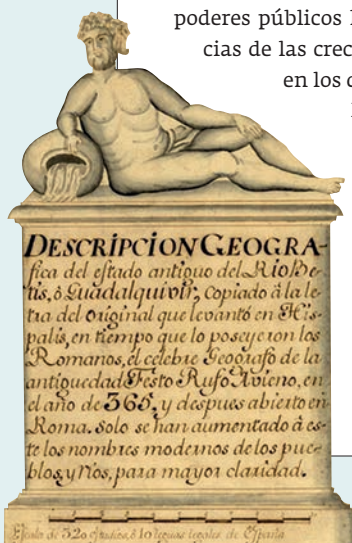 poderes públicos
cias de las crec
en los
DESCRIPCION GEOGRA-
fica del estado antiguo del Rio Be-
tis, ò Guadalquivir, Copiado à la le-
tra del Original que levantó en His-
palis, en tiempo que lo poseyeron los
Romanos, el célebre Geografo de la
antiguedad Festo Rufo Avieno, en
el año de 365, y despues abierto en
Roma. Solo se han aumentado à es-
te los nombres modernos de los pue-
blos, y Rios, para mayor claridad.
Escala de 320 estadios, ò 10 leguas legales de España